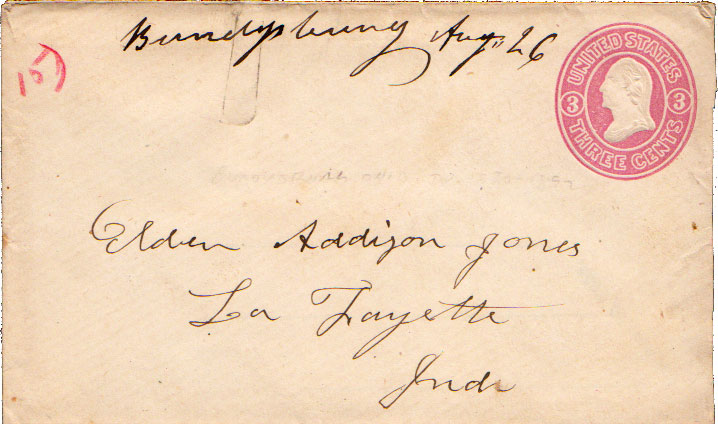 Bundysburg Aug 26
15)
UNITED STATES
3 3
THREE CENTS
Elder Addison Jones
La Fayette
Ind